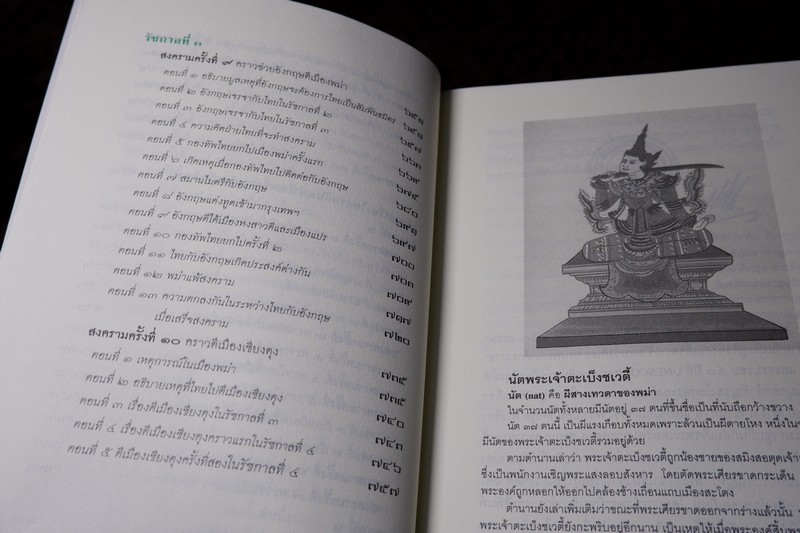 รัชกาลที่ ๓
สงครามครั้งที่ ๙ คราวช่วยอังกฤษตีเมืองพม่า
ตอนที่ ๑ อธิบายมูลเหตุที่อังกฤษจะต้องการไทยเป็นสัมพันธมิตร
ตอนที่ ๒ อังกฤษเจรจากับไทยในรัชกาลที่ ๒
ตอนที่ ๓ อังกฤษเจรจากับไทยในรัชกาลที่ ๓
ตอนที่ ๔ ความคิดฝ่ายไทยที่จะทำสงคราม ๖๕๗
ตอนที่ ๕ กองทัพไทยยกไปเมืองพม่าครั้งแรก ๖๖๓
ตอนที่ ๖ เกิดเหตุเมื่อกองทัพไทยไปติดต่อกับอังกฤษ ๖๖๙
ตอนที่ ๗ สมานไมตรีกับอังกฤษ ๖๗๕
ตอนที่ ๘ อังกฤษแต่งทูตเข้ามากรุงเทพฯ ๖๘๐
ตอนที่ ๙ อังกฤษตีได้เมืองหงสาวดีและเมืองแปร
ตอนที่ ๑๐ กองทัพไทยยกไปครั้งที่ ๒
ตอนที่ ๑๑ ไทยกับอังกฤษเกิดประสงค์ต่างกัน ๗๐๐
ตอนที่ ๑๒ พม่าแพ้สงคราม ๗๐๓
ตอนที่ ๑๓ ความตกลงกันในระหว่างไทยกับอังกฤษ ๗๐๙
เมื่อเสร็จสงคราม ๗๑๗
สงครามครั้งที่ ๑๐ คราวตีเมืองเชียงตุง ๗๒๐
ตอนที่ ๑ เหตุการณ์ในเมืองพม่า
ตอนที่ ๒ อธิบายเหตุที่ไทยไปตีเมืองเชียงตุง ๗๓๕
ตอนที่ ๓ เรื่องตีเมืองเชียงตุงในรัชกาลที่ ๓ ๗๔๐
ตอนที่ ๔ เรื่องตีเมืองเชียงตุงคราวแรกในรัชกาลที่ ๔ ๗๔๓
ตอนที่ ๕ ตีเมืองเชียงตุงครั้งที่สองในรัชกาลที่ ๔ ๗๔๖
๗๕๗
นัตพระเจ้าตะเบ็งชเวตี้
นัต (nat) คือ ผีสางเทวดาของพม่า
ในจำนวนนัตทั้งหลายมีนัตอยู่ ๓๗ ตนที่ขึ้นชื่อเป็นที่นับถือกว้างขวาง
นัต ๓๗ ตนนี้ เป็นผีแรงเกือบทั้งหมดเพราะล้วนเป็นผีตายโหง หนึ่งใน
มีนัตของพระเจ้าตะเบ็งชเวตี้รวมอยู่ด้วย
ตามตำนานเล่าว่า พระเจ้าตะเบ็งชเวตี้ถูกน้องชายของสมิงสอตุตเจ้า
ซึ่งเป็นพนักงานเชิญพระแสงลอบสังหาร โดยตัดพระเศียรขาดกระเด็น
พระองค์ถูกหลอกให้ออกไปคล้องช้างเถื่อนแถบเมืองสะโตง
ตำนานยังเล่าเพิ่มเติมว่าขณะที่พระเศียรขาดออกจากร่างแล้วนั้น
พระเจ้าตะเบ็งชเวตี้ยังกะพริบอยู่อีกนาน เป็นเหตุให้เมื่อพระองค์